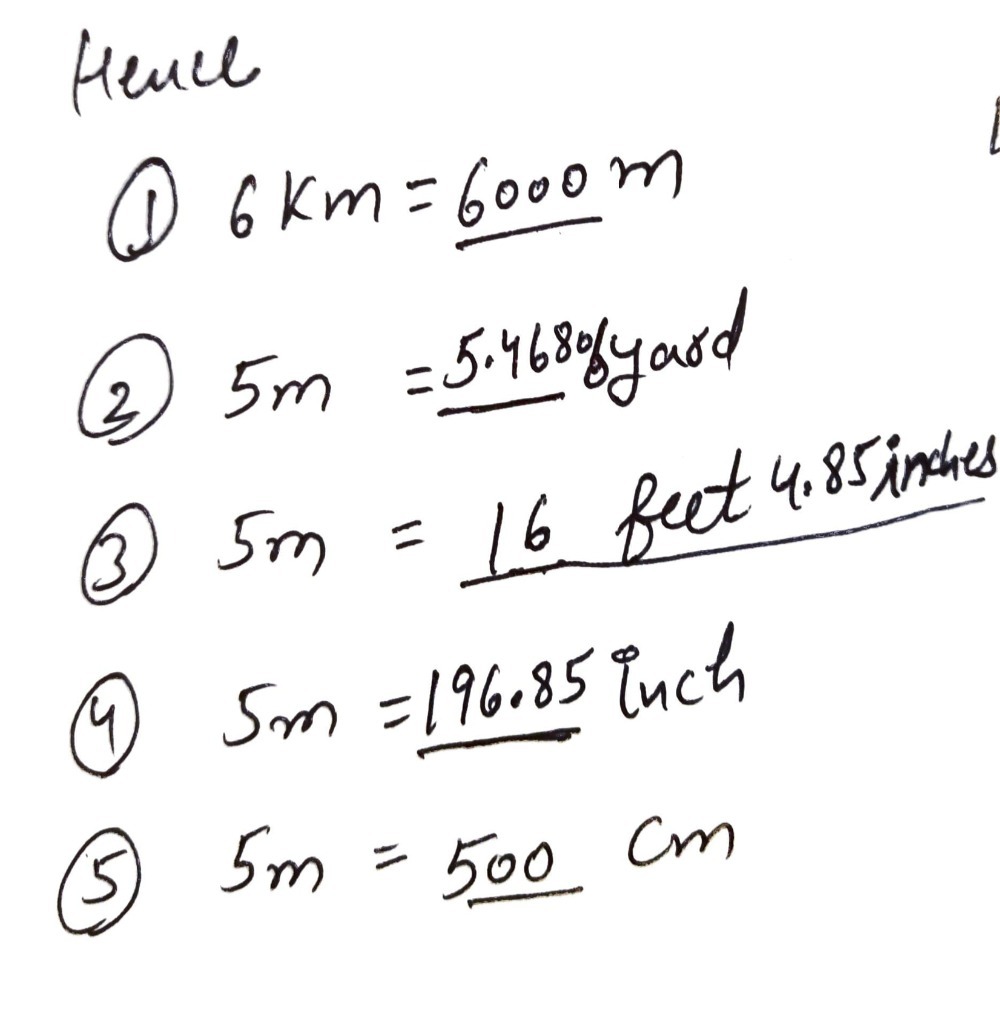 Hence
① 6 Km = 6000 m
② 5m = 5.46806 yard
③ 5m = 16 feet 4.85 inches
④ 5m = 196.85 inch
⑤ 5m = 500 cm